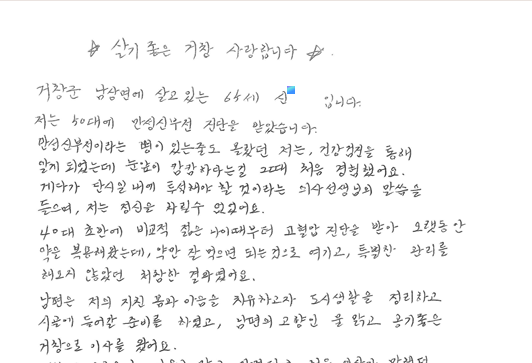 ☆ 살기 좋은 거창 사랑합니다 ☆.
거창군 남상면에 살고있는 65세 신 입니다.
저는 50대에 만성신부전 진단을 받았습니다.
만성신부전이라는 병이 있는줄도 몰랐던 저는, 건강검진을 통해
알게 되었는데 눈앞이 캄캄하다는걸 그때 처음 경험했어요.
게다가 단시일 내에 투석해야 할 것이라는 의사선생님의 말씀을
들으며, 저는 정신을 차릴수 없었어요.
40대 초반에 비교적 젊은 나이때부터 고혈압 진단을 받아 오랫동안
약은 복용해왔는데, 약만 잘 먹으면 되는것으로 여기고, 특별한 관리를
해오지 않았던 처참한 결과였어요.
남편은 저의 지친 몸과 마음을 치유하고자 도시생활을 정리하고
시골에 들어갈 준비를 하였고, 남편의 고향인 물 맑고 공기좋은
거창으로 이사를 왔어요.